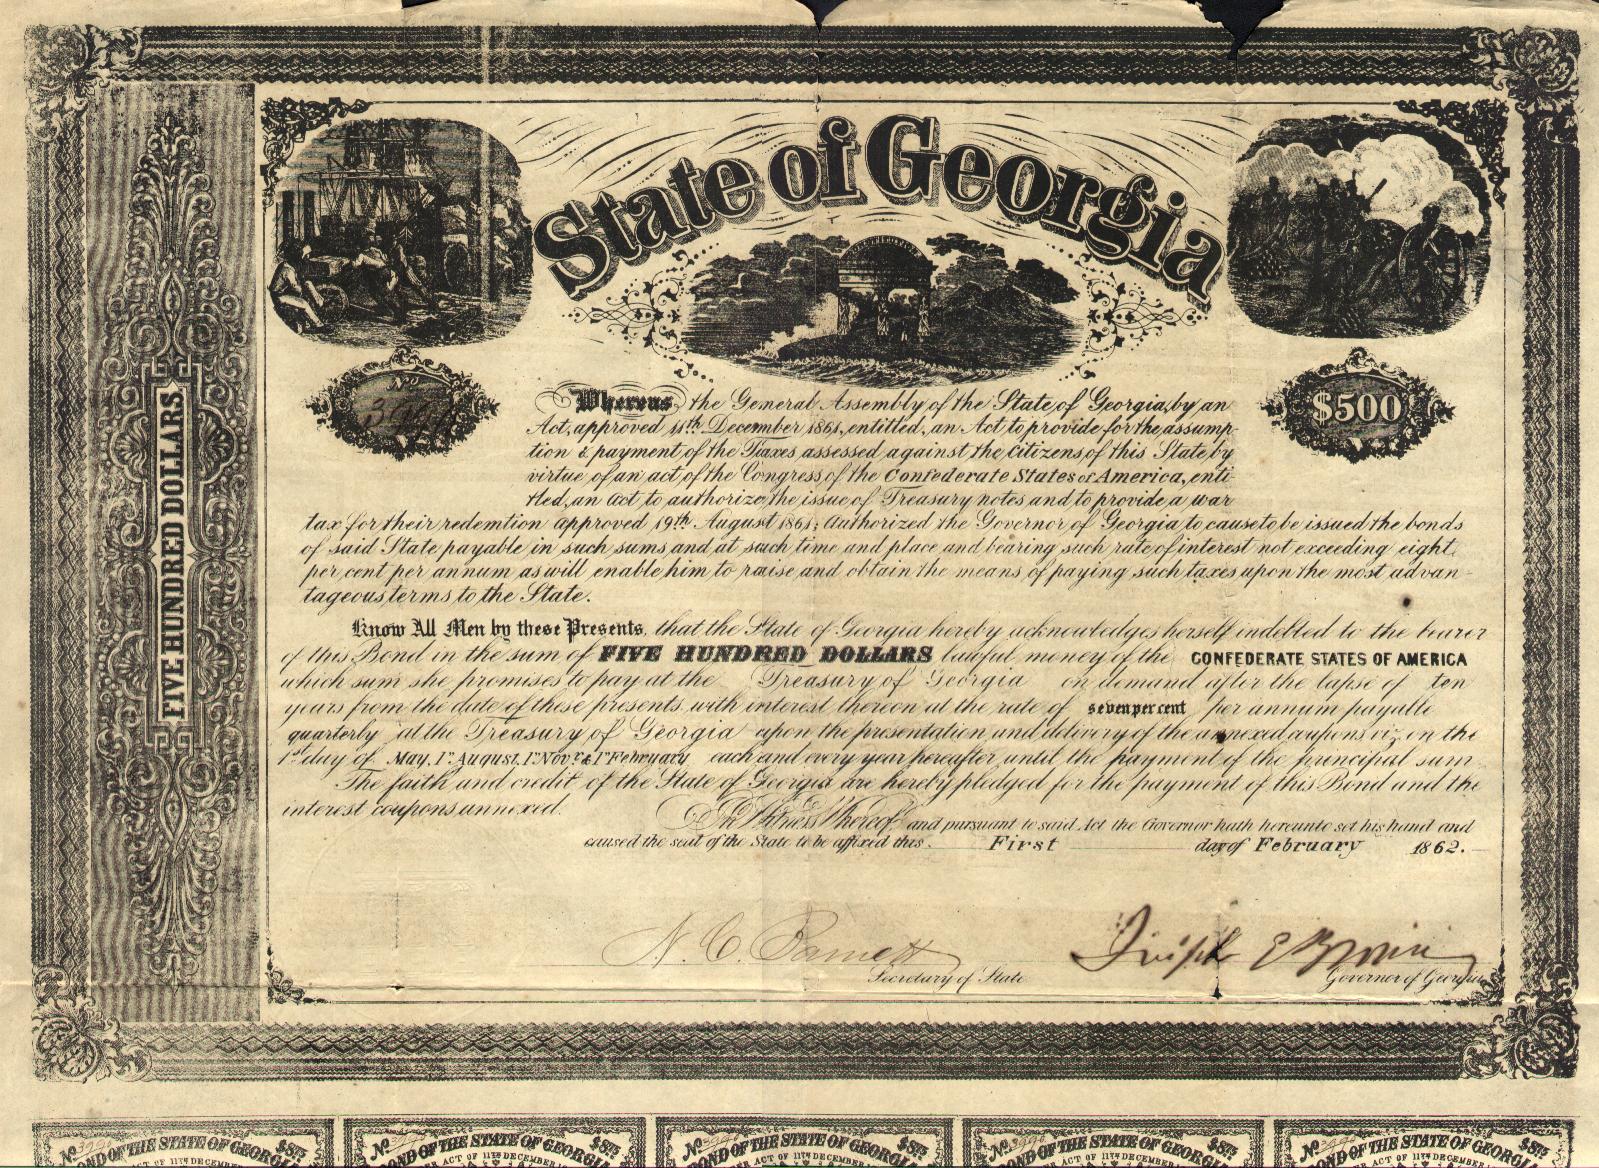 State of Georgia
No
$500
FIVE HUNDRED DOLLARS
Whereas, the General Assembly of the State of Georgia, by an
Act, approved 11th December 1861, entitled, an Act to provide for the assump-
tion & payment of the Taxes assessed against the Citizens of this State, by
virtue of an act of the Congress, of the Confederate States of America, enti-
tled, an Act to authorize the issue of Treasury notes and to provide a war
tax for their redemtion approved 19th August 1861; Authorized the Governor of Georgia to cause to be issued the bonds
of said State payable in such sums and at such time and place and bearing such rate of interest not exceeding eight
per cent per annum as will enable him to raise and obtain the means of paying such taxes upon the most advan-
tageous terms to the State.
Know All Men by these Presents, that the State of Georgia hereby acknowledges herself indebted to the bearer
of this Bond in the sum of FIVE HUNDRED DOLLARS lawful money of the CONFEDERATE STATES OF AMERICA
which sum she promises to pay at the Treasury of Georgia on demand after the lapse of ten
years from the date of these presents, with interest thereon at the rate of seven per cent per annum payable
quarterly at the Treasury of Georgia upon the presentation and delivery of the annexed coupons viz, on the
1st day of May, 1st August, 1st Novr & 1st February each and every year hereafter until the payment of the principal sum
The faith and credit of the State of Georgia are hereby pledged for the payment of this Bond and the
interest coupons annexed.
In Witness Whereof, and pursuant to said Act the Governor hath hereunto set his hand and
caused the seal of the State to be affixed this First day of February 1862.
N. C. Barnett
Secretary of State
Joseph E Brown
Governor of Georgia
No 3996 $8.75 No $8.75 No 3996 $8.75 No 3996 $8.75 No 3996 $8.75
BOND OF THE STATE OF GEORGIA BOND OF THE STATE OF GEORGIA BOND OF THE STATE OF GEORGIA BOND OF THE STATE OF GEORGIA BOND OF THE STATE OF GEORGIA
ACT OF 11TH DECEMBER ACT OF 11TH DECEMBER ACT OF 11TH DECEMBER ACT OF 11TH DECEMBER ACT OF 11TH DECEMBER